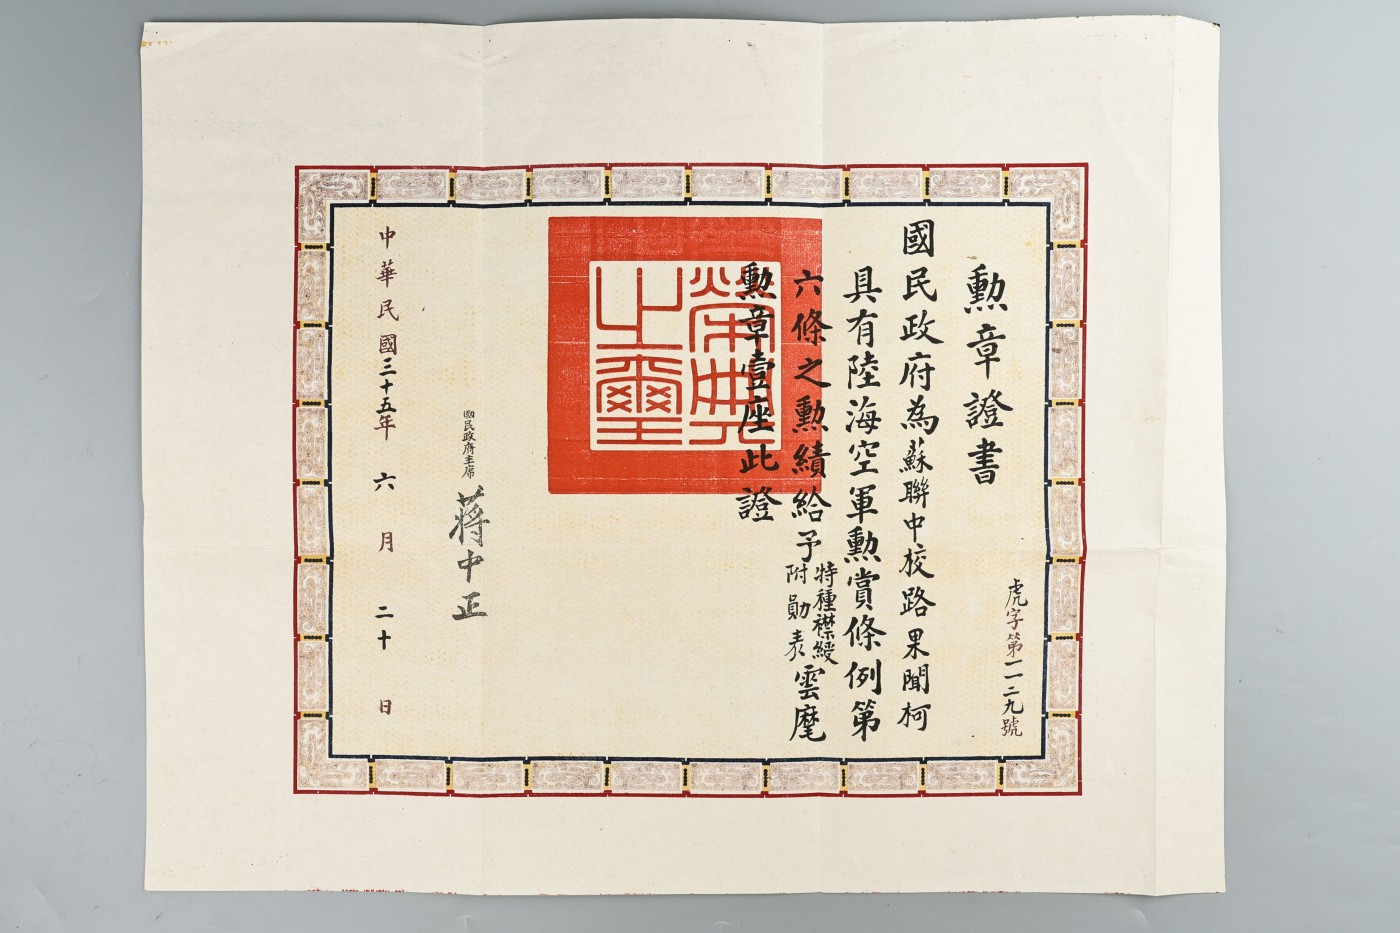 勲章證書
虎字第一一二九號
國民政府為蘇聯中校路果聞柯
具有陸海空軍勲賞條例第
六條之勲績給予特種襟綬附勛表雲麾
勲章壹座此證
榮典之璽
國民政府主席 蔣中正
中華民國三十五年六月二十日